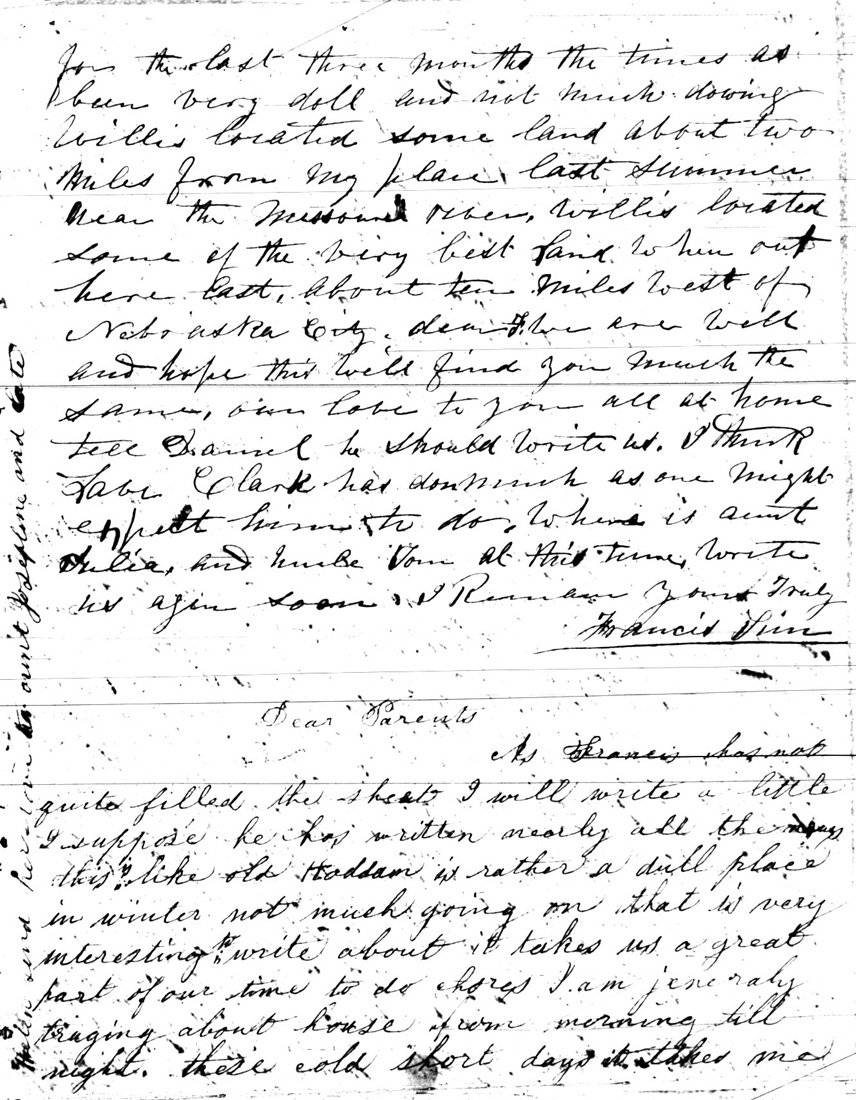 for the last three months the times as
been very doll and not much dowing
Willis located some land about two
miles from my place last summer
near the Missouri river, Willis located
some of the very best land when out
here last, about ten miles west of
Nebraska City. dear we are well
and hope this will find you much the
same, our love to you all at home
tell Daniel he should write us. I think
Labe Clark has don much as one might
expect him to do, Where is aunt
Julia, and uncle Tom at this time, write
us agen soon. I Remain yours Truly
Francis
Dear Parents
As Francis has not
quite filled the sheet I will write a little
I suppose he has written nearly all the news
this like old Haddam is rather a dull place
in winter not much going on that is very
interesting to write about it takes us a great
part of our time to do chores I am jeneraly
traging about house from morning till
night. these cold short days it takes me
Helen send her love to aunt Josephine and Cate